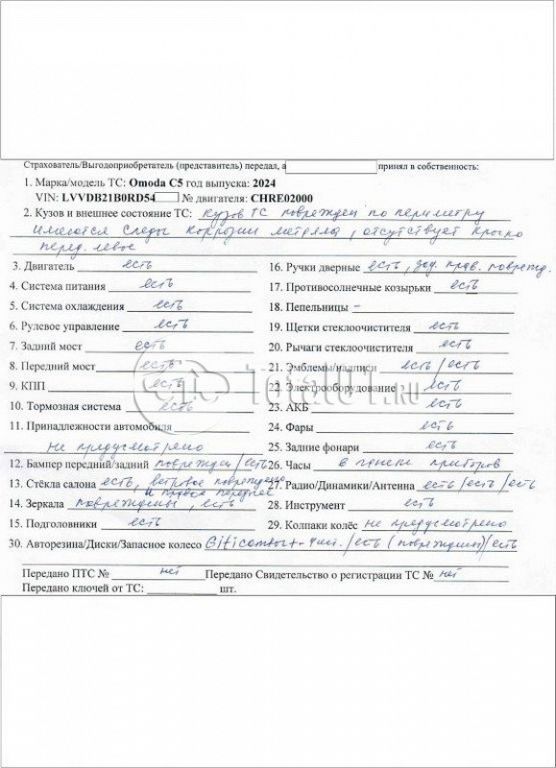 Страхователь/Выгодоприобретатель (представитель) передал, а принял в собственность:
1. Марка/модель ТС: Omoda C5 год выпуска: 2024
VIN: LVVDB21B0RD54 № двигателя: CHRE02000
2. Кузов и внешнее состояние ТС: кузов ТС поврежден по периметру
имеются следы коррозии металла, отсутствует крыло
перед. левое
3. Двигатель есть
4. Система питания есть
5. Система охлаждения есть
6. Рулевое управление есть
7. Задний мост есть
8. Передний мост есть
9. КПП есть
10. Тормозная система есть
11. Принадлежности автомобиля
не предусмотрено
12. Бампер передний/задний поврежден/есть
13. Стёкла салона есть, ветровое повреждено
и правое переднее
14. Зеркала повреждены, есть
15. Подголовники есть
16. Ручки дверные есть, зад. прав. поврежд.
17. Противосолнечные козырьки есть
18. Пепельницы –
19. Щетки стеклоочистителя есть
20. Рычаги стеклоочистителя есть
21. Эмблемы/надписи есть/есть
22. Электрооборудование есть
23. АКБ есть
24. Фары есть
25. Задние фонари есть
26. Часы в панели приборов
27. Радио/Динамики/Антенна есть/есть/есть
28. Инструмент есть
29. Колпаки колёс не предусмотрено
30. Авторезина/Диски/Запасное колесо Giticomfort 4шт./есть (повреждены)/есть
Передано ПТС № нет Передано Свидетельство о регистрации ТС № нет
Передано ключей от ТС: шт.
total01.ru